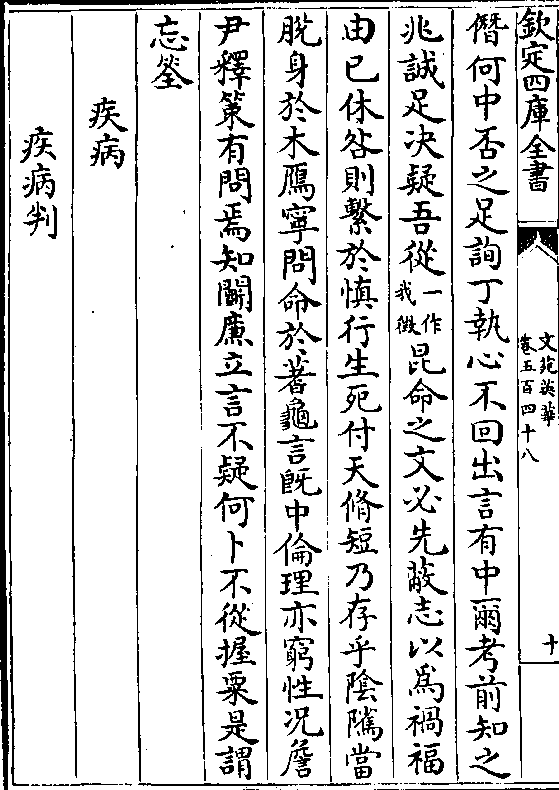 欽定四庫全書
文苑英華
卷五百四十八
十
僭何中否之足詢丁執心不回出言有中爾考前知之
兆誠足決疑吾從一作我徴昆命之文必先蔽志以爲禍福
由已休咎則繫於慎行生死付天脩短乃存乎陰隲當
脫身於木鴈寧問命於蓍龜言旣中倫理亦窮性况詹
尹釋策有問焉知關㢘立言不疑何卜不從握粟是謂
忘筌
疾病
疾病判